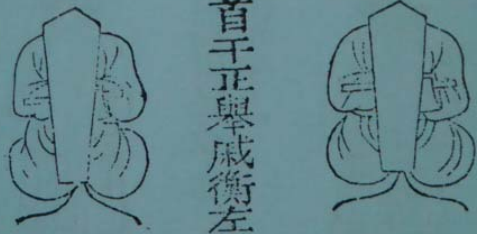 首干正舉戚衡左